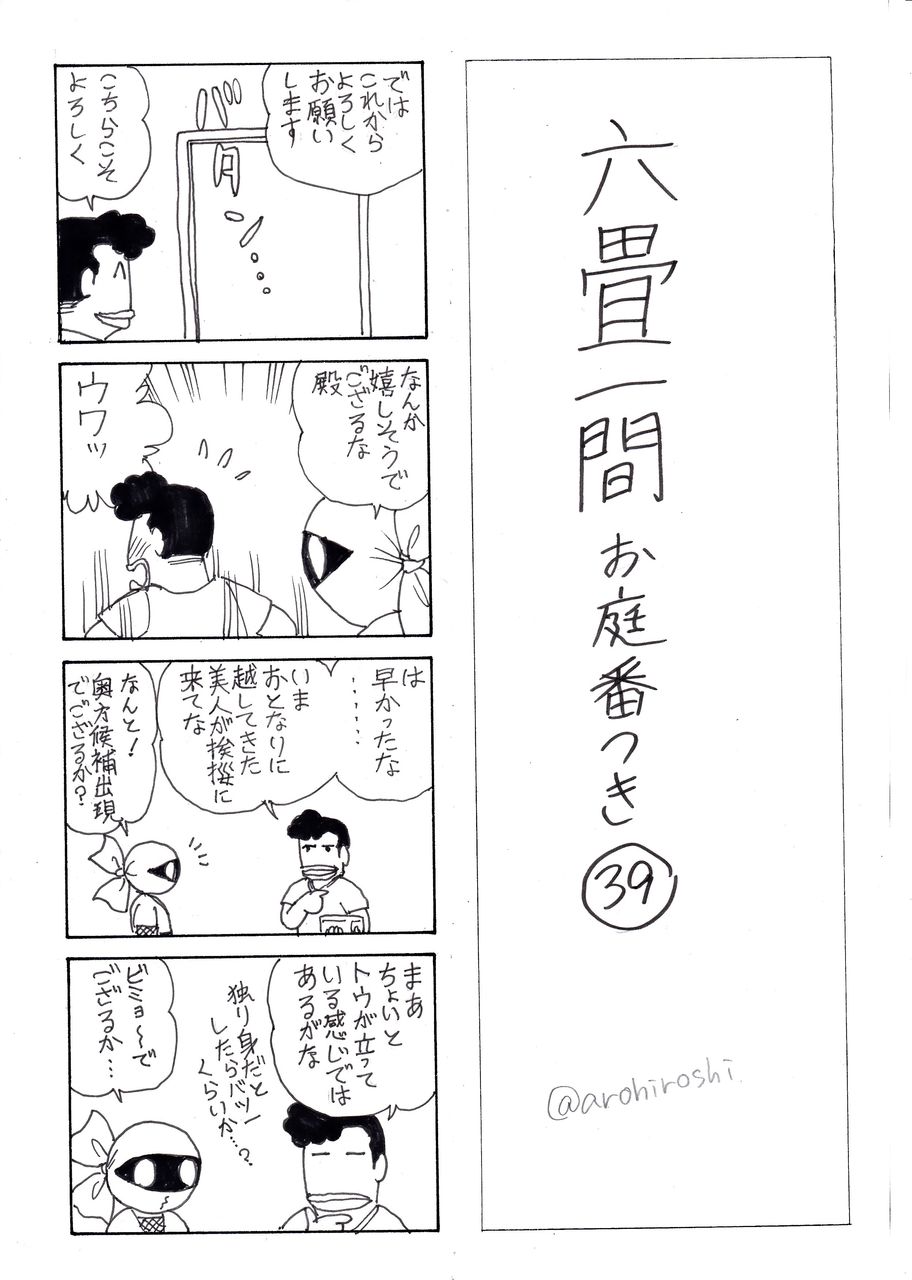 六畳一間お庭番つき㊴
@arohiroshi
では
これから
よろしく
お願い
します
バタン...
こちらこそ
よろしく
なんか
嬉しそうで
ござるな
殿
ウワッ
は
早かったな
……
いま
おとなりに
越してきた
美人が挨拶に
来てな
なんと！
奥方候補出現
でござるか？
まあ
ちょいと
トウが立って
いる感じでは
あるがな
独り身だと
したらバツ一
くらいか…？
ビミョ〜で
ござるか…